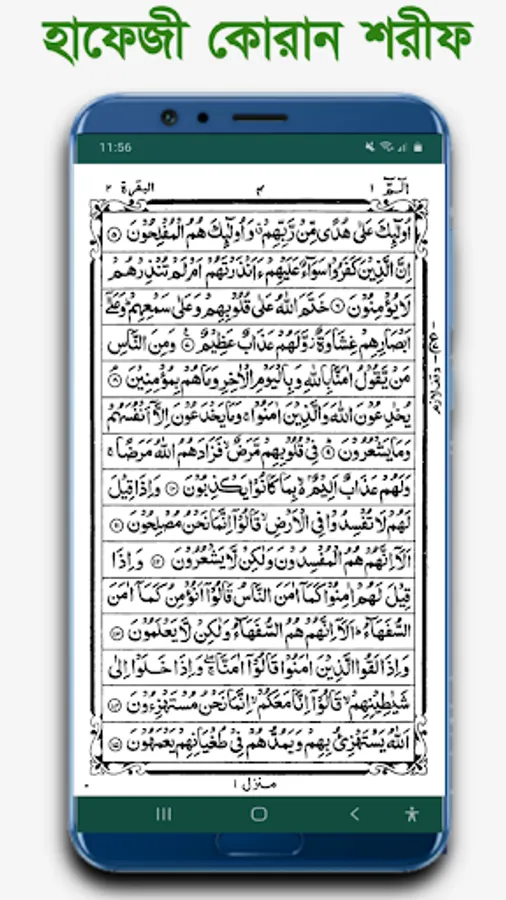 হাফেজী কোরান শরীফ
11:56
الٓمّٓ ١ ٣ البقرة ٢
اُولٰٓئِكَ عَلٰى هُدًى مِّنْ رَّبِّهِمْ ۗ وَاُولٰٓئِكَ هُمُ الْمُفْلِحُوْنَ ۝٥
اِنَّ الَّذِيْنَ كَفَرُوْا سَوَآءٌ عَلَيْهِمْ ءَاَنْذَرْتَهُمْ اَمْ لَمْ تُنْذِرْهُمْ
لَا يُؤْمِنُوْنَ ۝٦ خَتَمَ اللّٰهُ عَلٰى قُلُوْبِهِمْ وَعَلٰى سَمْعِهِمْ ؕ وَعَلٰٓى
اَبْصَارِهِمْ غِشَاوَةٌ ؗ وَّلَهُمْ عَذَابٌ عَظِيْمٌ ۝٧ وَمِنَ النَّاسِ
مَنْ يَّقُوْلُ اٰمَنَّا بِاللّٰهِ وَبِالْيَوْمِ الْاٰخِرِ وَمَا هُمْ بِمُؤْمِنِيْنَ ۝٨
يُخٰدِعُوْنَ اللّٰهَ وَالَّذِيْنَ اٰمَنُوْا ۚ وَمَا يَخْدَعُوْنَ اِلَّآ اَنْفُسَهُمْ
وَمَا يَشْعُرُوْنَ ۝٩ فِيْ قُلُوْبِهِمْ مَّرَضٌ ۙ فَزَادَهُمُ اللّٰهُ مَرَضًا ۚ
وَلَهُمْ عَذَابٌ اَلِيْمٌ ۢ ۙ بِمَا كَانُوْا يَكْذِبُوْنَ ۝١٠ وَاِذَا قِيْلَ
لَهُمْ لَا تُفْسِدُوْا فِي الْاَرْضِ ۙ قَالُوْٓا اِنَّمَا نَحْنُ مُصْلِحُوْنَ ۝١١
اَلَآ اِنَّهُمْ هُمُ الْمُفْسِدُوْنَ وَلٰكِنْ لَّا يَشْعُرُوْنَ ۝١٢ وَاِذَا
قِيْلَ لَهُمْ اٰمِنُوْا كَمَآ اٰمَنَ النَّاسُ قَالُوْٓا اَنُؤْمِنُ كَمَآ اٰمَنَ
السُّفَهَآءُ ؕ اَلَآ اِنَّهُمْ هُمُ السُّفَهَآءُ وَلٰكِنْ لَّا يَعْلَمُوْنَ ۝١٣
وَاِذَا لَقُوا الَّذِيْنَ اٰمَنُوْا قَالُوْٓا اٰمَنَّا ۖ وَاِذَا خَلَوْا اِلٰى
شَيٰطِيْنِهِمْ ۙ قَالُوْٓا اِنَّا مَعَكُمْ ۙ اِنَّمَا نَحْنُ مُسْتَهْزِءُوْنَ ۝١٤
اَللّٰهُ يَسْتَهْزِئُ بِهِمْ وَيَمُدُّهُمْ فِيْ طُغْيَانِهِمْ يَعْمَهُوْنَ ۝١٥
وقف لازم
منزل ١